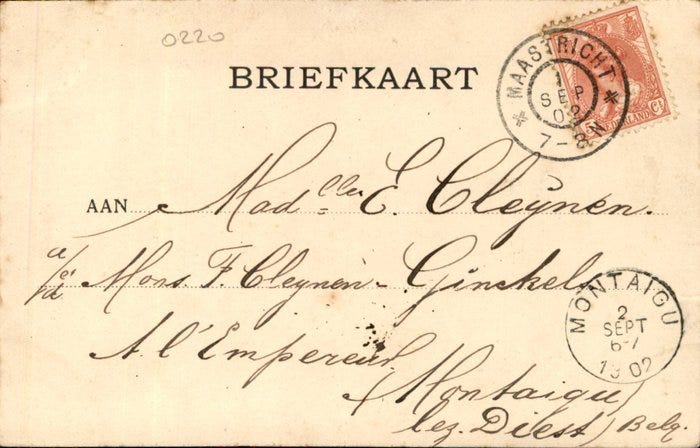 0220
BRIEFKAART
MAASTRICHT
1 SEP 02
7-8N
NEDERLAND
AAN Madelle E. Cleÿnen.
Mons. F. Cleynen-Ginckels
A l'Empereur
Montaigu
lez. Diest, Belg.
MONTAIGU
2
SEPT
6-7
1902